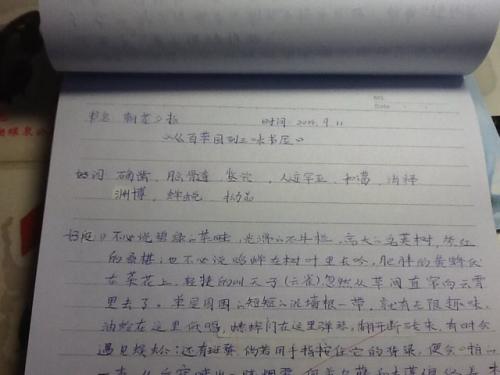 No.
Date
书名 朝花夕拾 时间: 2014. 9. 11
《从百草园到三味书屋》
好词 确凿, 脑髓, 人迹罕至, 和蔼, 消释
渊博, 蝉蜕,
好段: 不必说碧绿的菜畦, 光滑的石井栏, 高大的皂荚树, 紫红
的桑椹; 也不必说鸣蝉在树叶里长吟, 肥胖的黄蜂伏
在菜花上, 轻捷的叫天子(云雀)忽然从草间直窜向云霄
里去了。单是周围的短短的泥墙根一带, 就有无限趣味。
油蛉在这里低唱, 蟋蟀们在这里弹琴。翻开断砖来, 有时会
遇见蜈蚣; 还有斑蝥, 倘若用手指按住它的脊梁, 便会